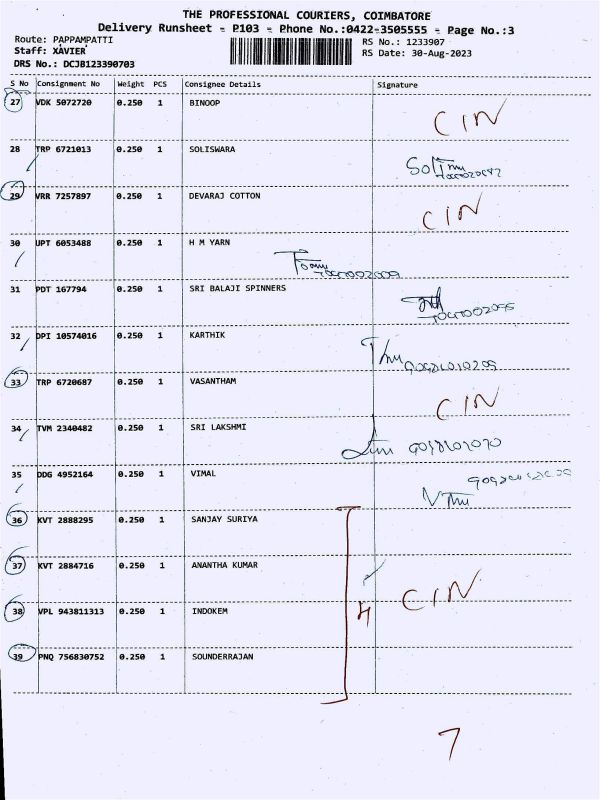 THE PROFESSIONAL COURIERS, COIMBATORE
Delivery Runsheet - P103 - Phone No.:0422-3505555 - Page No.:3
Route: PAPPAMPATTI
RS No.: 1233907
Staff: XAVIER
RS Date: 30-Aug-2023
DRS No.: DCJB123390703
S No Consignment No Weight PCS Consignee Details Signature
27 VDK 5072720 0.250 1 BINOOP CIN
28 TRP 6721013 0.250 1 SOLISWARA
29 VRR 7257897 0.250 1 DEVARAJ COTTON CIN
30 UPT 6053488 0.250 1 H M YARN
31 PDT 167794 0.250 1 SRI BALAJI SPINNERS
32 DPI 10574016 0.250 1 KARTHIK
33 TRP 6720687 0.250 1 VASANTHAM CIN
34 TVM 2340482 0.250 1 SRI LAKSHMI
35 DDG 4952164 0.250 1 VIMAL
36 KVT 2888295 0.250 1 SANJAY SURIYA
37 KVT 2884716 0.250 1 ANANTHA KUMAR
4 CIN
38 VPL 943811313 0.250 1 INDOKEM
39 PNQ 756830752 0.250 1 SOUNDERRAJAN
7